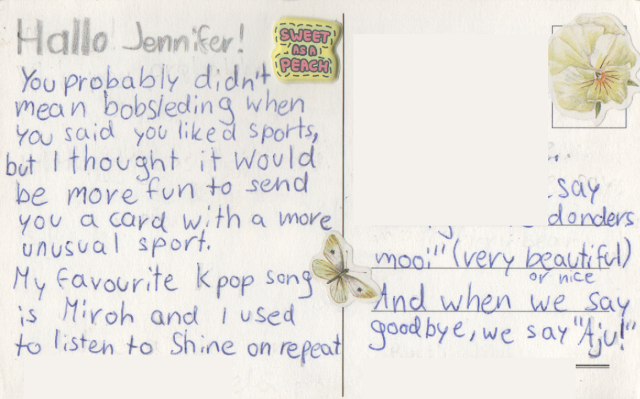 Hallo Jennifer!
SWEET
AS A
PEACH
You probably didn't
mean bobsleding when
you said you liked sports,
but I thought it would
be more fun to send
you a card with a more
unusual sport.
My favourite kpop song
is Miroh and I used
to listen to Shine on repeat
say
donders
mooi" (very beautiful)
or nice
And when we say
goodbye, we say "Aju!"